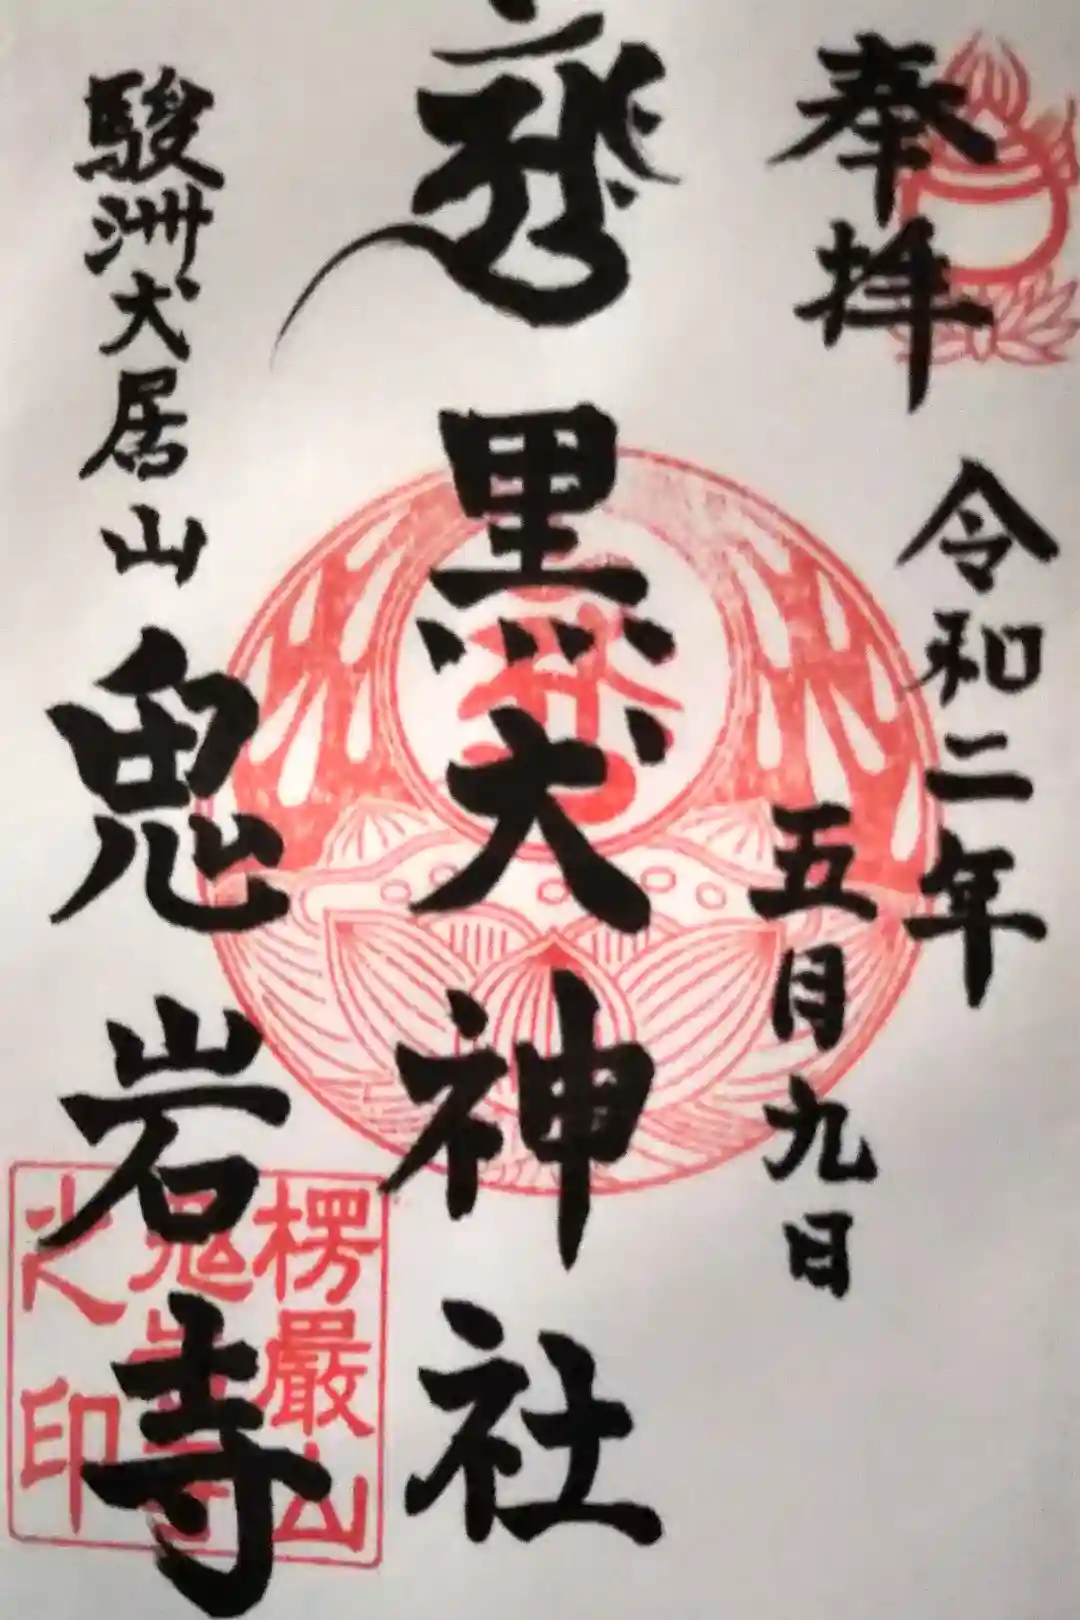 奉拝
令和二年
五月九日
黒犬神社
駿洲犬居山
鬼岩寺
楞嚴山
鬼岩寺
之印